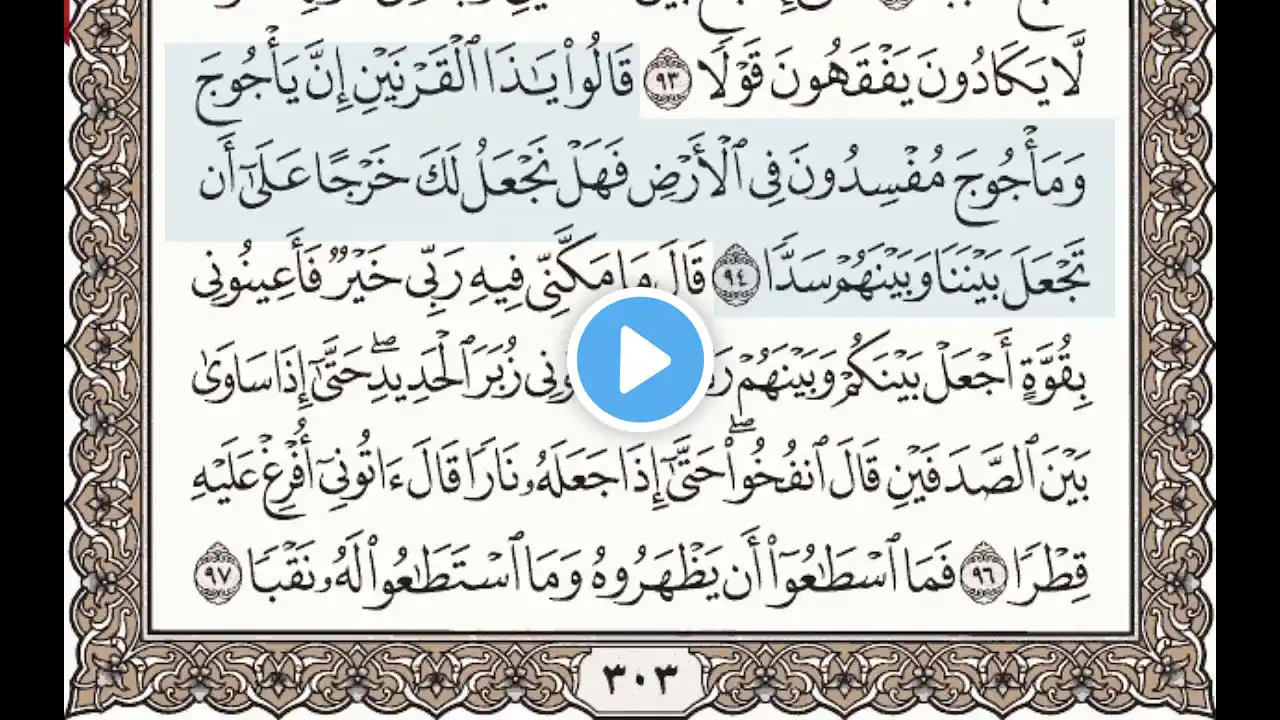 لَّا يَكَادُونَ يَفْقَهُونَ قَوْلًا ٩٣ قَالُوا۟ يَـٰذَا ٱلْقَرْنَيْنِ إِنَّ يَأْجُوجَ
وَمَأْجُوجَ مُفْسِدُونَ فِى ٱلْأَرْضِ فَهَلْ نَجْعَلُ لَكَ خَرْجًا عَلَىٰٓ أَن
تَجْعَلَ بَيْنَنَا وَبَيْنَهُمْ سَدًّا ٩٤ قَالَ مَا مَكَّنِّى فِيهِ رَبِّى خَيْرٌ فَأَعِينُونِى
بِقُوَّةٍ أَجْعَلْ بَيْنَكُمْ وَبَيْنَهُمْ زُبَرَ ٱلْحَدِيدِ ۖ حَتَّىٰٓ إِذَا سَاوَىٰ
بَيْنَ ٱلصَّدَفَيْنِ قَالَ ٱنفُخُوا۟ ۖ حَتَّىٰٓ إِذَا جَعَلَهُۥ نَارًا قَالَ ءَاتُونِىٓ أُفْرِغْ عَلَيْهِ
قِطْرًا ٩٦ فَمَا ٱسْطَـٰعُوٓا۟ أَن يَظْهَرُوهُ وَمَا ٱسْتَطَـٰعُوا۟ لَهُۥ نَقْبًا ٩٧
٣٠٣